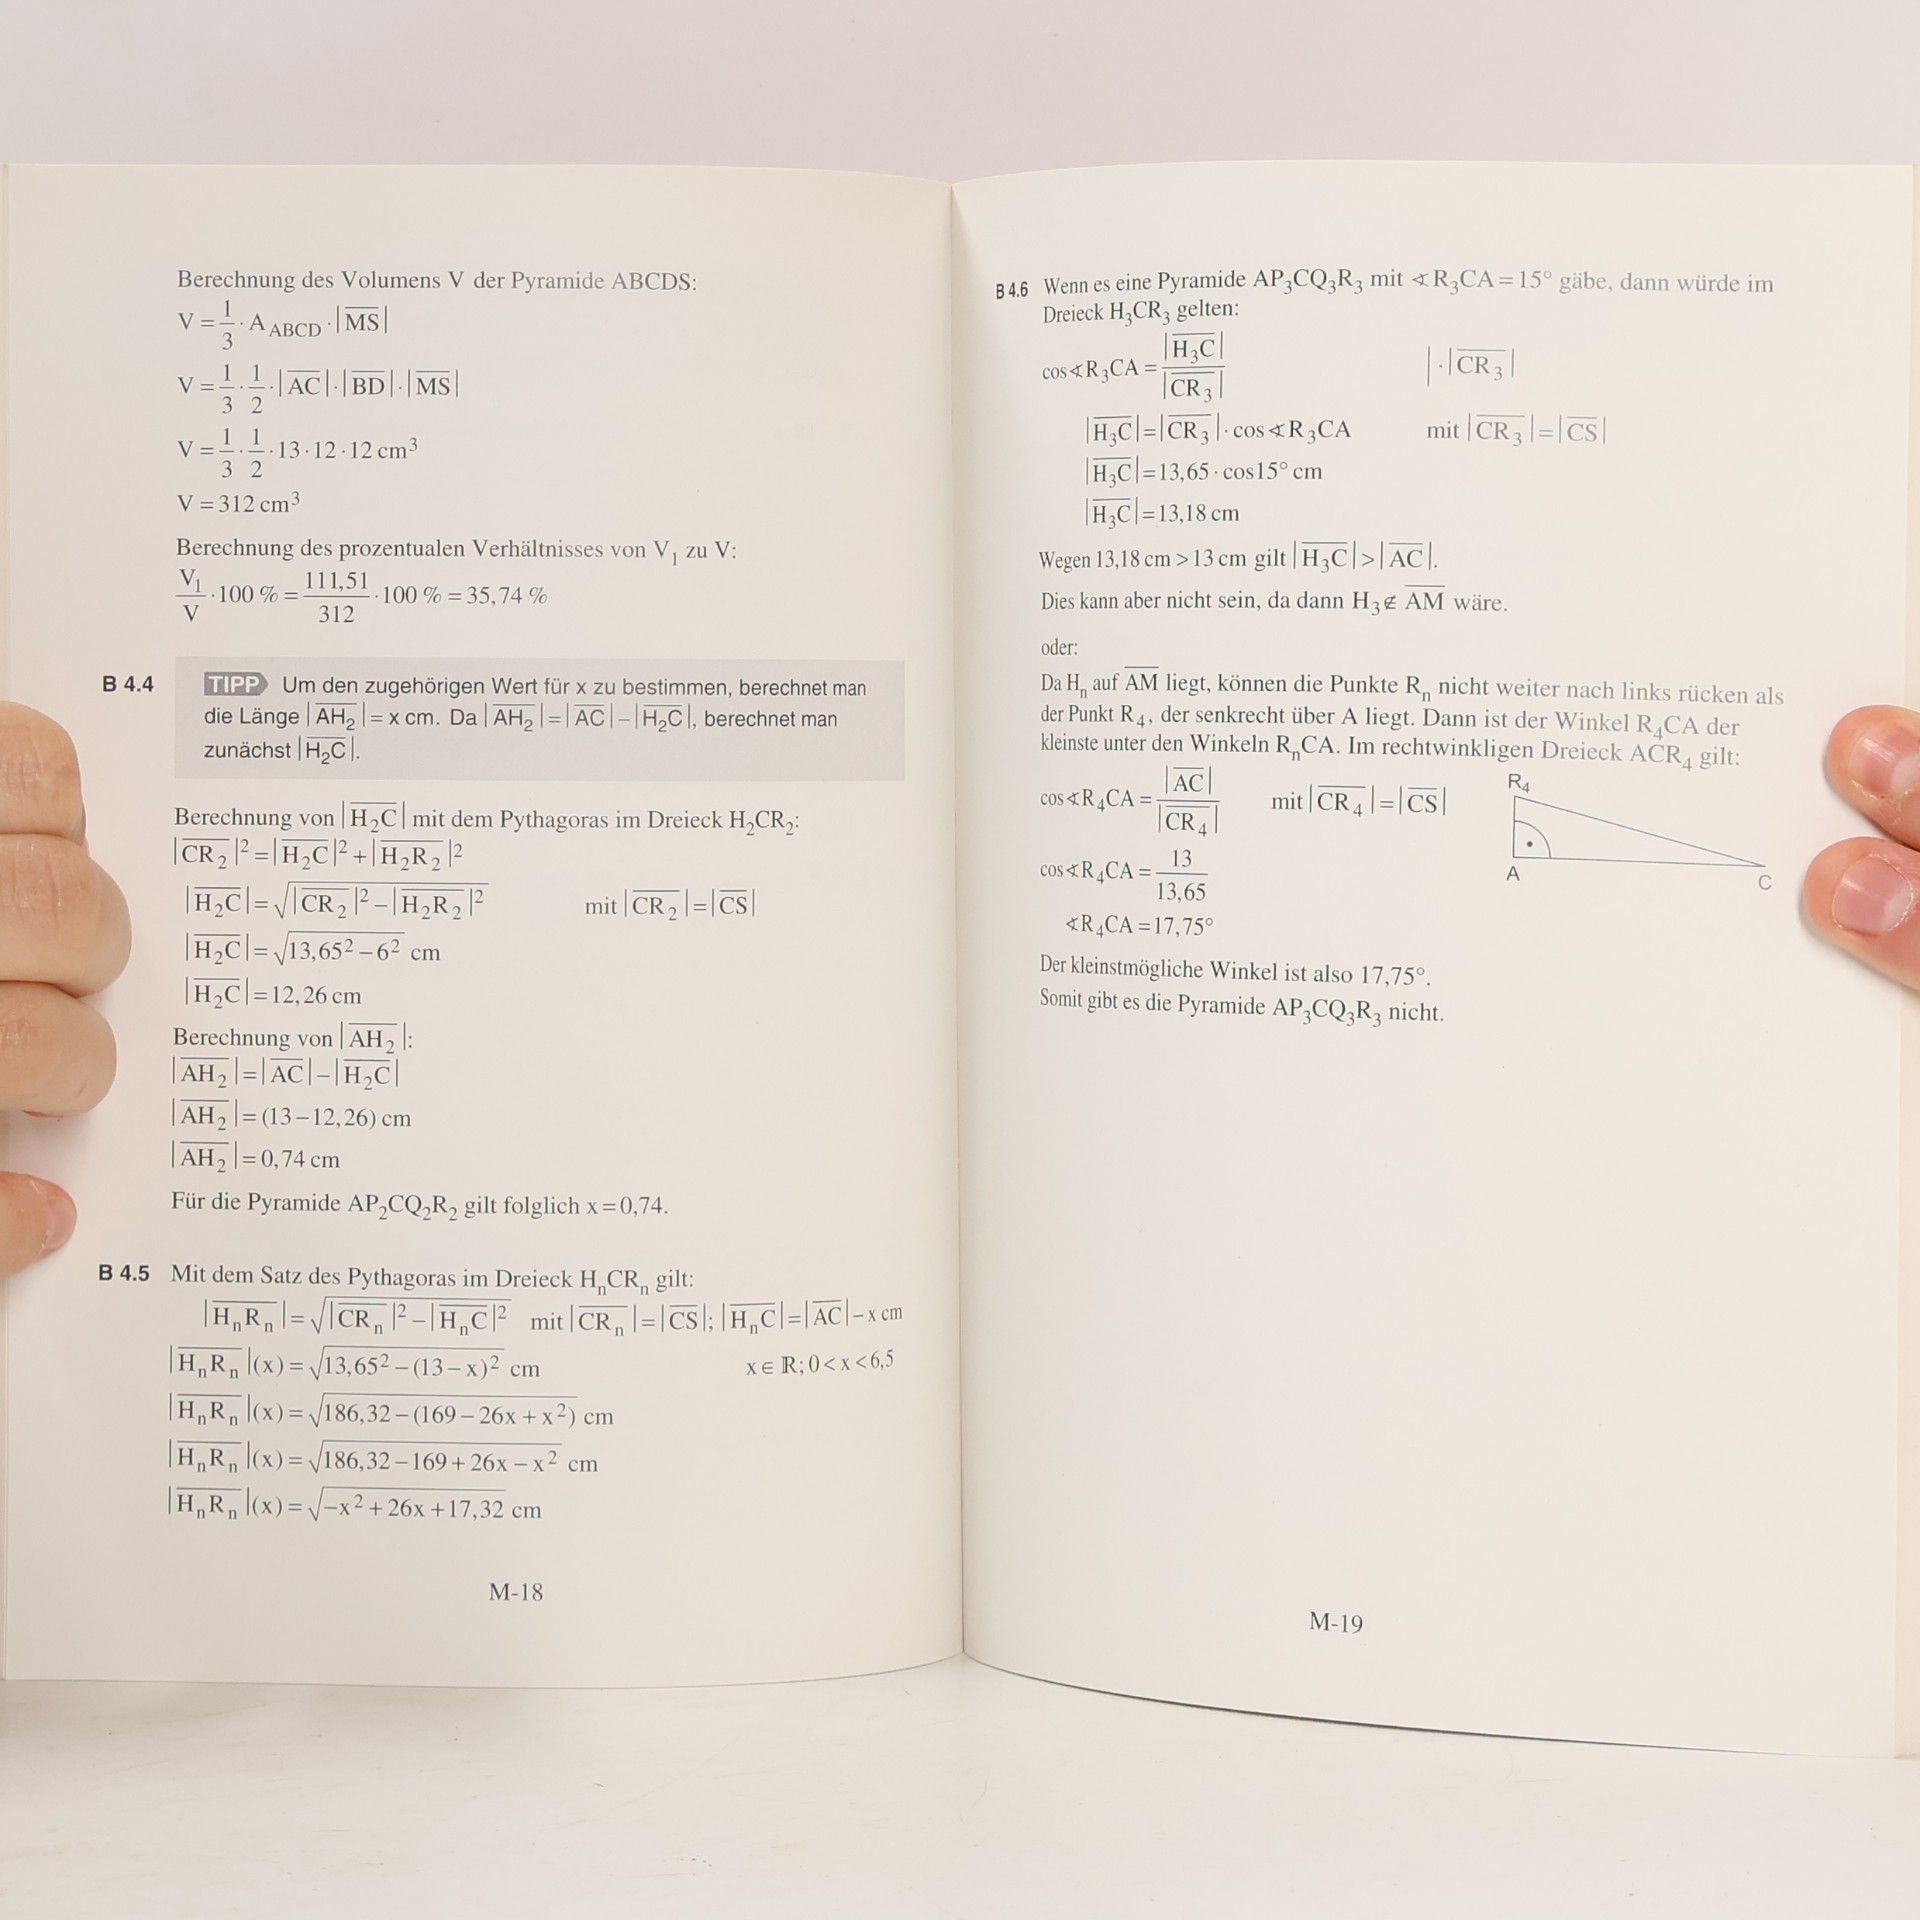 Berechnung des Volumens V der Pyramide ABCDS:
V = 1/3 · A_ABCD · |M̅S̅|
V = 1/3 · 1/2 · |A̅C̅| · |B̅D̅| · |M̅S̅|
V = 1/3 · 1/2 · 13 · 12 · 12 cm³
V = 312 cm³
Berechnung des prozentualen Verhältnisses von V₁ zu V:
V₁/V · 100 % = 111,51/312 · 100 % = 35,74 %
B 4.4 TIPP Um den zugehörigen Wert für x zu bestimmen, berechnet man
die Länge |A̅H̅₂| = x cm. Da |A̅H̅₂| = |A̅C̅| − |H̅₂C̅|, berechnet man
zunächst |H̅₂C̅|.
Berechnung von |H̅₂C̅| mit dem Pythagoras im Dreieck H₂CR₂:
|C̅R̅₂|² = |H̅₂C̅|² + |H̅₂R̅₂|²
|H̅₂C̅| = √(|C̅R̅₂|² − |H̅₂R̅₂|²) mit |C̅R̅₂| = |C̅S̅|
|H̅₂C̅| = √(13,65² − 6²) cm
|H̅₂C̅| = 12,26 cm
Berechnung von |A̅H̅₂|:
|A̅H̅₂| = |A̅C̅| − |H̅₂C̅|
|A̅H̅₂| = (13 − 12,26) cm
|A̅H̅₂| = 0,74 cm
Für die Pyramide AP₂CQ₂R₂ gilt folglich x = 0,74.
B 4.5 Mit dem Satz des Pythagoras im Dreieck HₙCRₙ gilt:
|H̅ₙR̅ₙ| = √(|C̅R̅ₙ|² − |H̅ₙC̅|²) mit |C̅R̅ₙ| = |C̅S̅|; |H̅ₙC̅| = |A̅C̅| − x cm
|H̅ₙR̅ₙ|(x) = √(13,65² − (13 − x)²) cm x ∈ ℝ; 0 < x < 6,5
|H̅ₙR̅ₙ|(x) = √(186,32 − (169 − 26x + x²)) cm
|H̅ₙR̅ₙ|(x) = √(186,32 − 169 + 26x − x²) cm
|H̅ₙR̅ₙ|(x) = √(−x² + 26x + 17,32) cm
M-18
B 4.6 Wenn es eine Pyramide AP₃CQ₃R₃ mit ∢R₃CA = 15° gäbe, dann würde im
Dreieck H₃CR₃ gelten:
cos∢R₃CA = |H̅₃C̅|/|C̅R̅₃| | · |C̅R̅₃|
|H̅₃C̅| = |C̅R̅₃| · cos∢R₃CA mit |C̅R̅₃| = |C̅S̅|
|H̅₃C̅| = 13,65 · cos15° cm
|H̅₃C̅| = 13,18 cm
Wegen 13,18 cm > 13 cm gilt |H̅₃C̅| > |A̅C̅|.
Dies kann aber nicht sein, da dann H₃ ∉ A̅M̅ wäre.
oder:
Da Hₙ auf A̅M̅ liegt, können die Punkte Rₙ nicht weiter nach links rücken als
der Punkt R₄, der senkrecht über A liegt. Dann ist der Winkel R₄CA der
kleinste unter den Winkeln RₙCA. Im rechtwinkligen Dreieck ACR₄ gilt:
cos∢R₄CA = |A̅C̅|/|C̅R̅₄| mit |C̅R̅₄| = |C̅S̅|
cos∢R₄CA = 13/13,65
∢R₄CA = 17,75°
R₄
A
C
Der kleinstmögliche Winkel ist also 17,75°.
Somit gibt es die Pyramide AP₃CQ₃R₃ nicht.
M-19